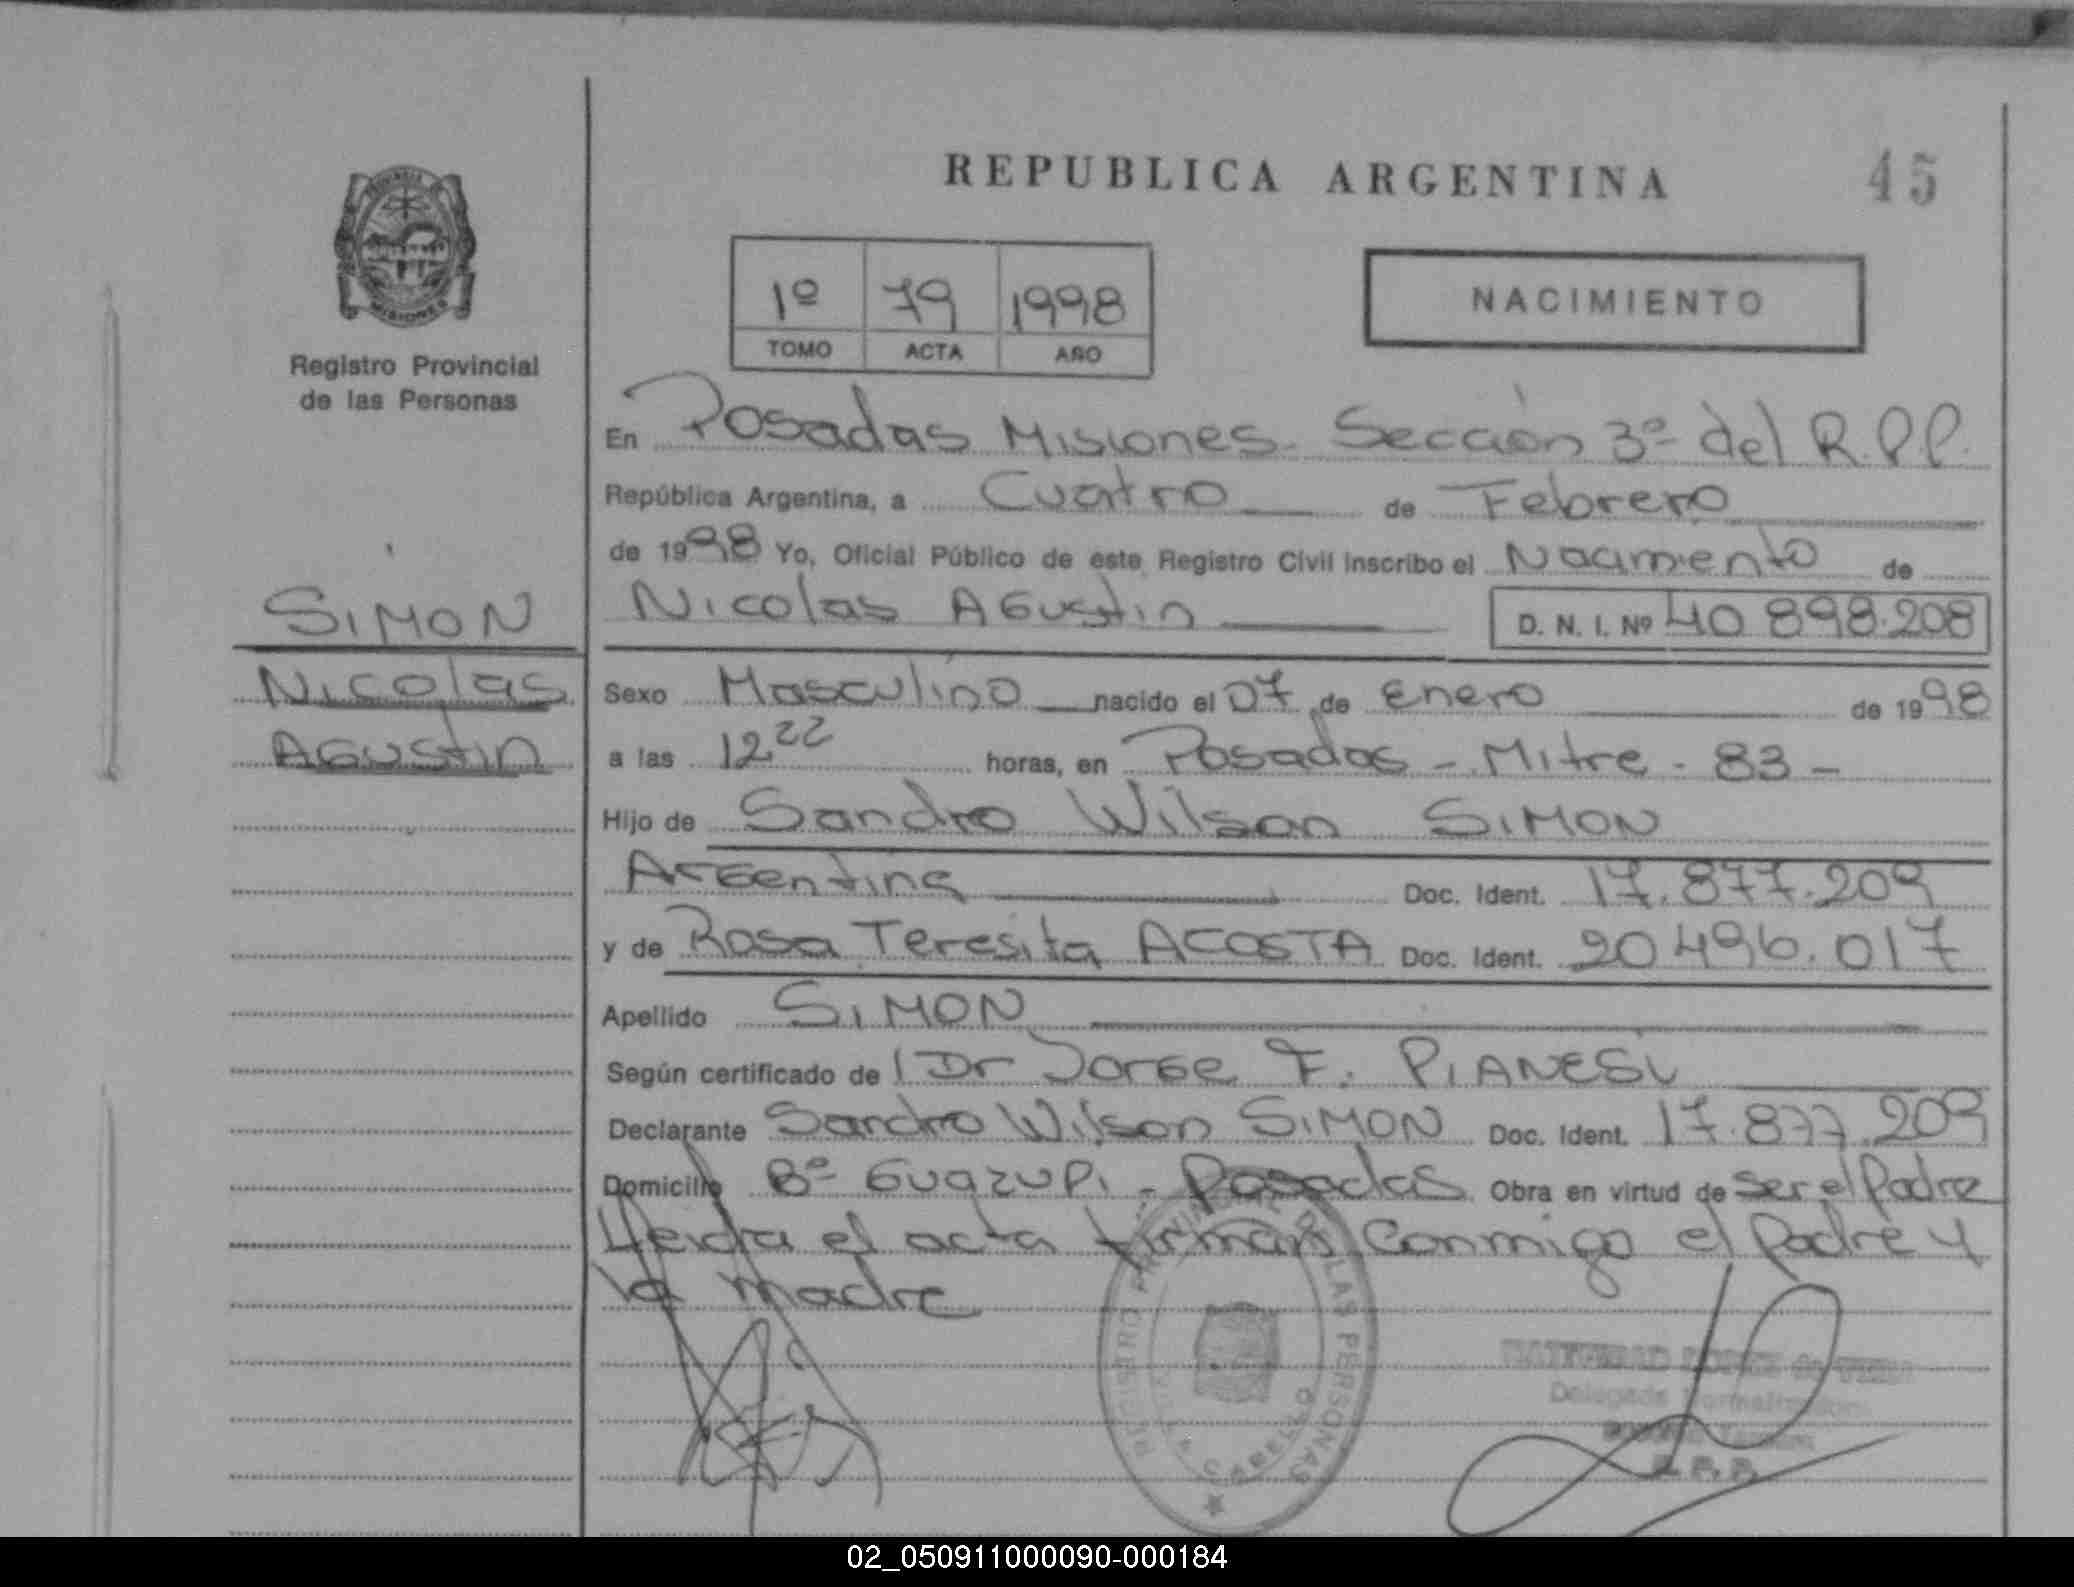 REPUBLICA ARGENTINA
45
PROVINCIA MISIONES
Registro Provincial
de las Personas
1º 79 1998
TOMO ACTA AÑO
NACIMIENTO
En Posadas Misiones. Sección 3ª del R.P.P.
República Argentina, a Cuatro de Febrero
de 1998 Yo, Oficial Público de este Registro Civil inscribo el Nacimiento de
SIMON
Nicolas Agustin D. N. I. Nº 40 898.208
Nicolas
Sexo Masculino nacido el 07 de Enero de 1998
Agustin
a las 12 22 horas, en Posadas - Mitre - 83 -
Hijo de Sandro Wilson SIMON
Argentina Doc. Ident. 17.877.209
y de Rosa Teresita ACOSTA Doc. Ident. 20 496.017
Apellido SIMON
Según certificado de l Dr Jorge F. PIANESI
Declarante Sandro Wilson SIMON Doc. Ident. 17.877.209
Domicilio Bº Guazupi - Posadas Obra en virtud de ser el Padre
Leida el acta firman conmigo el Padre y
la madre
REGISTRO PROVINCIAL DE LAS PERSONAS
Delegada
R.P.P.
02_050911000090-000184